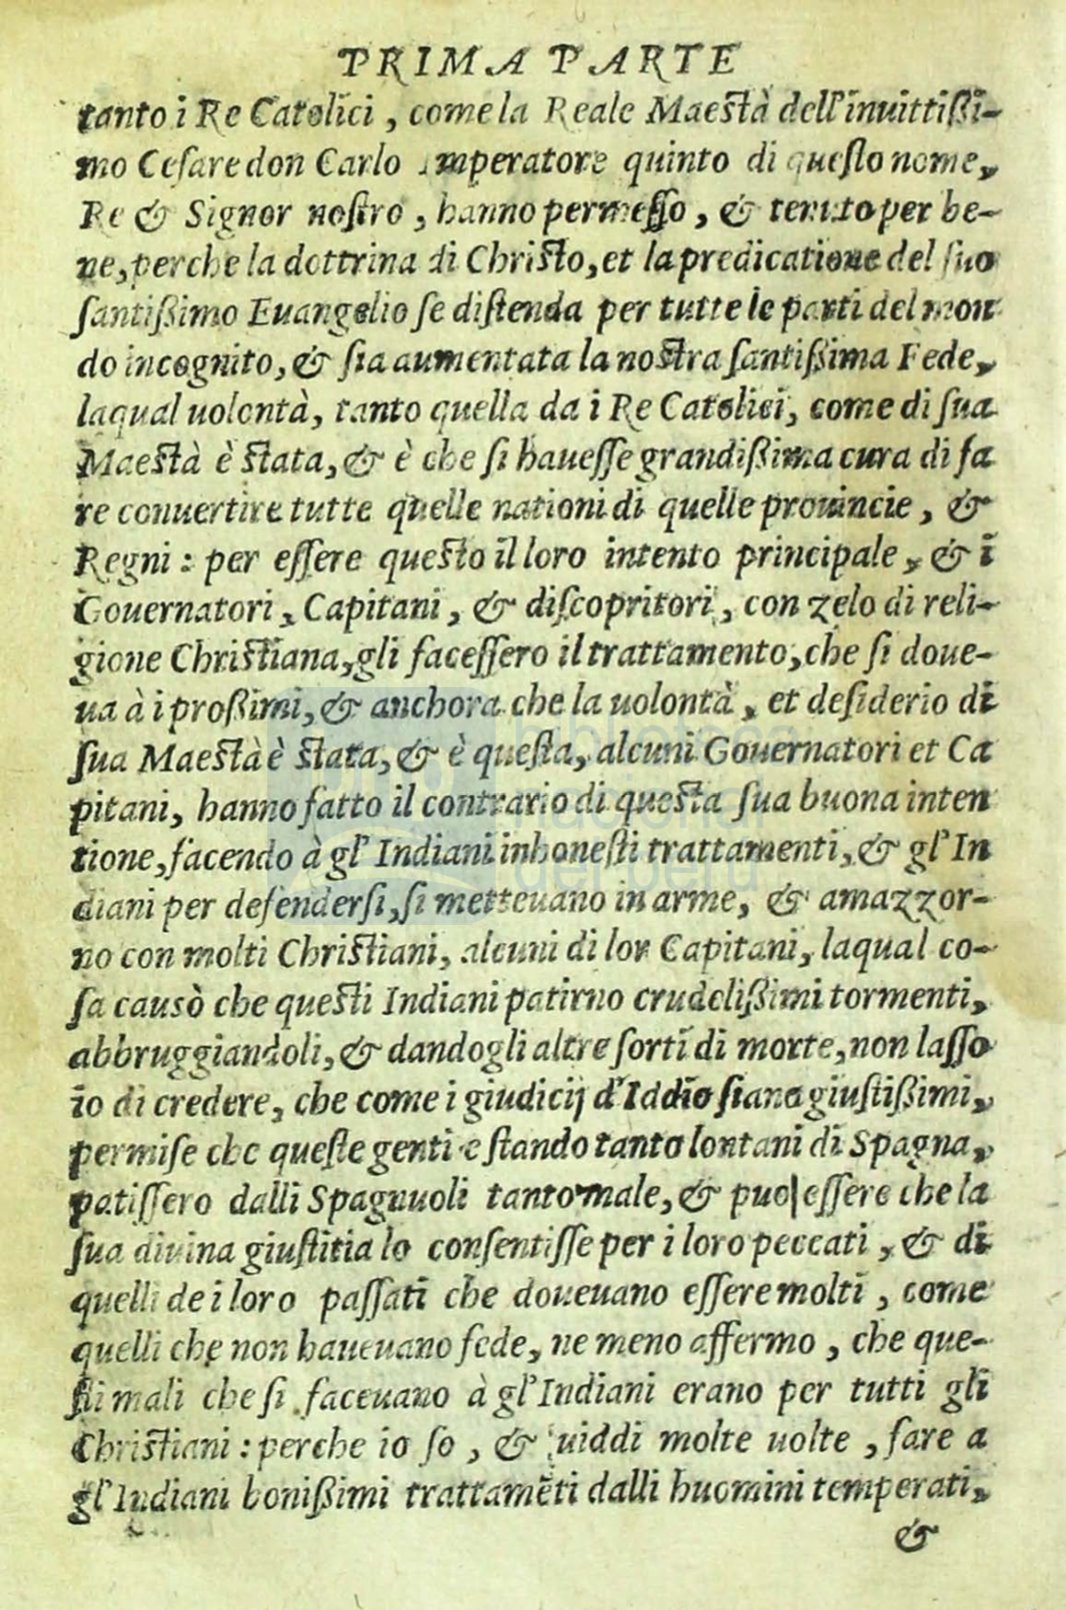 PRIMA PARTE
tanto i Re Catolici, come la Reale Maestà dell'inuittißi-
mo Cesare don Carlo Imperatore quinto di questo nome,
Re & Signor nostro, hanno permesso, & tenuto per be-
ne, perche la dottrina di Christo, et la predicatione del suo
santißimo Euangelio se distenda per tutte le parti del mon
do incognito, & sia aumentata la nostra santißima Fede,
laqual uolontà, tanto quella da i Re Catolici, come di sua
Maestà è stata, & è che si hauesse grandißima cura di fa
re conuertire tutte quelle nationi di quelle prouincie, &
Regni: per essere questo il loro intento principale, & i
Gouernatori, Capitani, & discopritori, con zelo di reli-
gione Christiana, gli facessero il trattamento, che si doue-
ua à i proßimi, & anchora che la uolontà, et desiderio di
sua Maestà è stata, & è questa, alcuni Gouernatori et Ca
pitani, hanno fatto il contrario di questa sua buona inten
tione, facendo à gl'Indiani inhonesti trattamenti, & gl'In
diani per defendersi, si metteuano in arme, & amazzor-
no con molti Christiani, alcuni di lor Capitani, laqual co-
sa causò che questi Indiani patirno crudelißimi tormenti,
abbruggiandoli, & dandogli altre sorti di morte, non lasso
io di credere, che come i giudicij d'Iddio siano giustißimi,
permise che queste genti estando tanto lontani di Spagna,
patissero dalli Spagnuoli tanto male, & puo essere che la
sua diuina giustitia lo consentisse per i loro peccati, & di
quelli de i loro passati che doueuano essere molti, come
quelli che non haueuano fede, ne meno affermo, che que-
sti mali che si faceuano à gl'Indiani erano per tutti gli
Christiani: perche io so, & uiddi molte uolte, fare a
gl'Indiani bonißimi trattamẽti dalli huomini temperati,
&